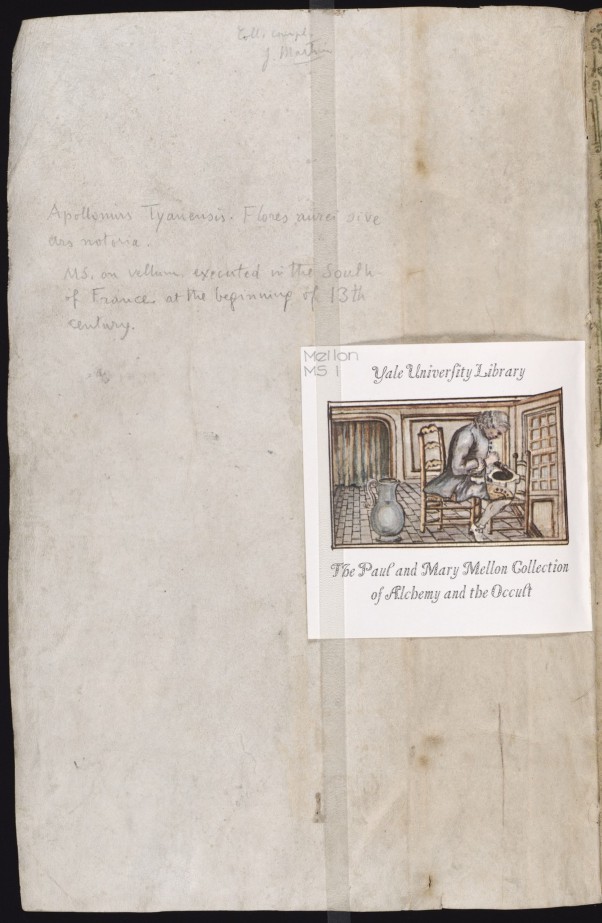 Coll. compl.
J. Martin
Apollonius Tyanensis. Flores aurei sive
ars notoria.
MS. on vellum, executed in the South
of France at the beginning of 13th
century.
Mellon
MS 1
Yale University Library
The Paul and Mary Mellon Collection
of Alchemy and the Occult